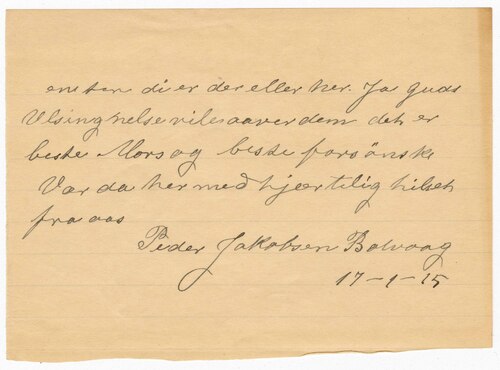 ensten di er der eller her. Ja guds
Velsingnelse vile aaver dem det er
beste Mors og beste fars önske
Var da her med hjærtilig hilset
fra aas
Peder Jakobsen Bolvaag
17-1-15